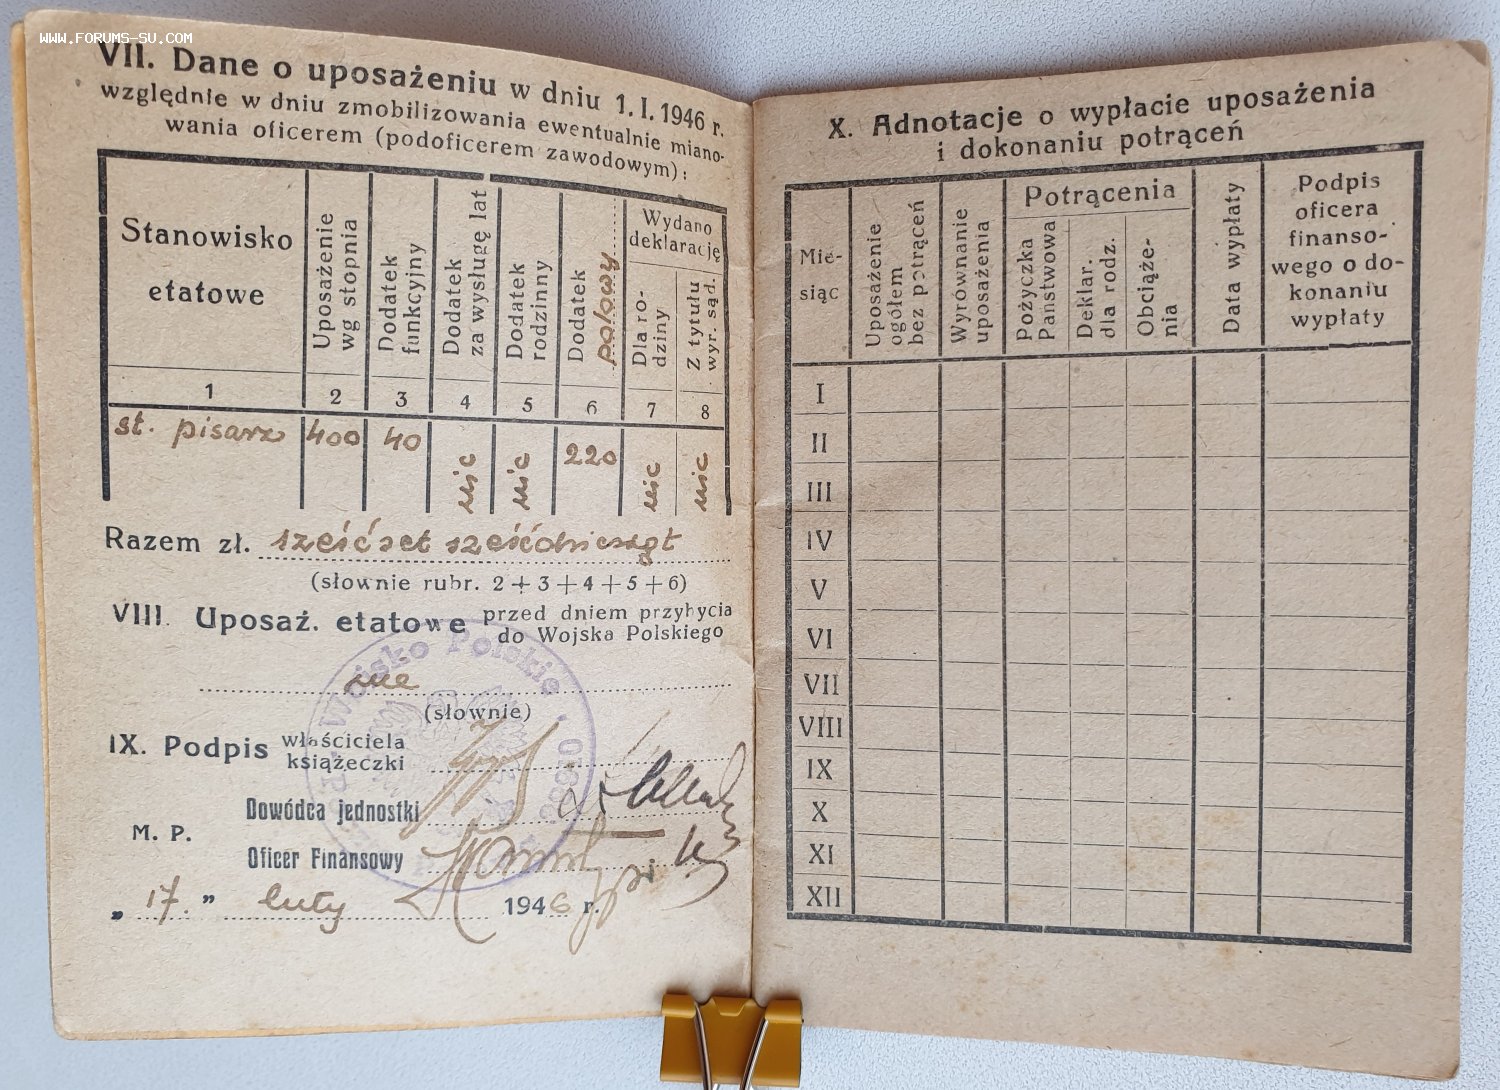 WWW.FORUMS-SU.COM
VII. Dane o uposażeniu w dniu 1. I. 1946 r.
względnie w dniu zmobilizowania ewentualnie miano-
wania oficerem (podoficerem zawodowym):
Stanowisko
etatowe
Uposażenie
wg stopnia
Dodatek
funkcyjny
Dodatek
za wysługę lat
Dodatek
rodzinny
Dodatek
polowy
Wydano
deklarację
Dla ro-
dziny
Z tytułu
wyr. sąd.
1 2 3 4 5 6 7 8
st. pisarz 400 40 nic nic 220 nic nic
Razem zł. sześćset sześćdziesiąt
(słownie rubr. 2 + 3 + 4 + 5 + 6)
VIII. Uposaż. etatowe przed dniem przybycia
do Wojska Polskiego
nie
(słownie)
Wojsko Polskie
IX. Podpis właściciela
książeczki
Dowódca jednostki
M. P.
Oficer Finansowy
„ 17. ” luty 1946 r.
X. Adnotacje o wypłacie uposażenia
i dokonaniu potrąceń
Mie-
siąc
Uposażenie
ogółem
bez potrąceń
Wyrównanie
uposażenia
Potrącenia
Pożyczka
Państwowa
Deklar.
dla rodz.
Obciąże-
nia
Data wypłaty
Podpis
oficera
finanso-
wego o do-
konaniu
wypłaty
I
II
III
IV
V
VI
VII
VIII
IX
X
XI
XII